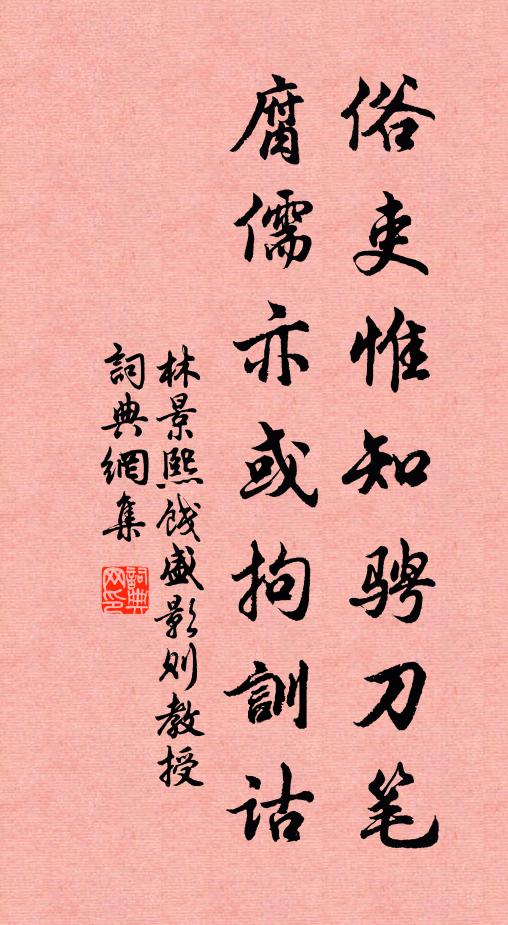 俗吏惟知骋刀笔
腐儒亦或拘訓诂
林景熙餞盛影则教授
詞典網集
詞典网印